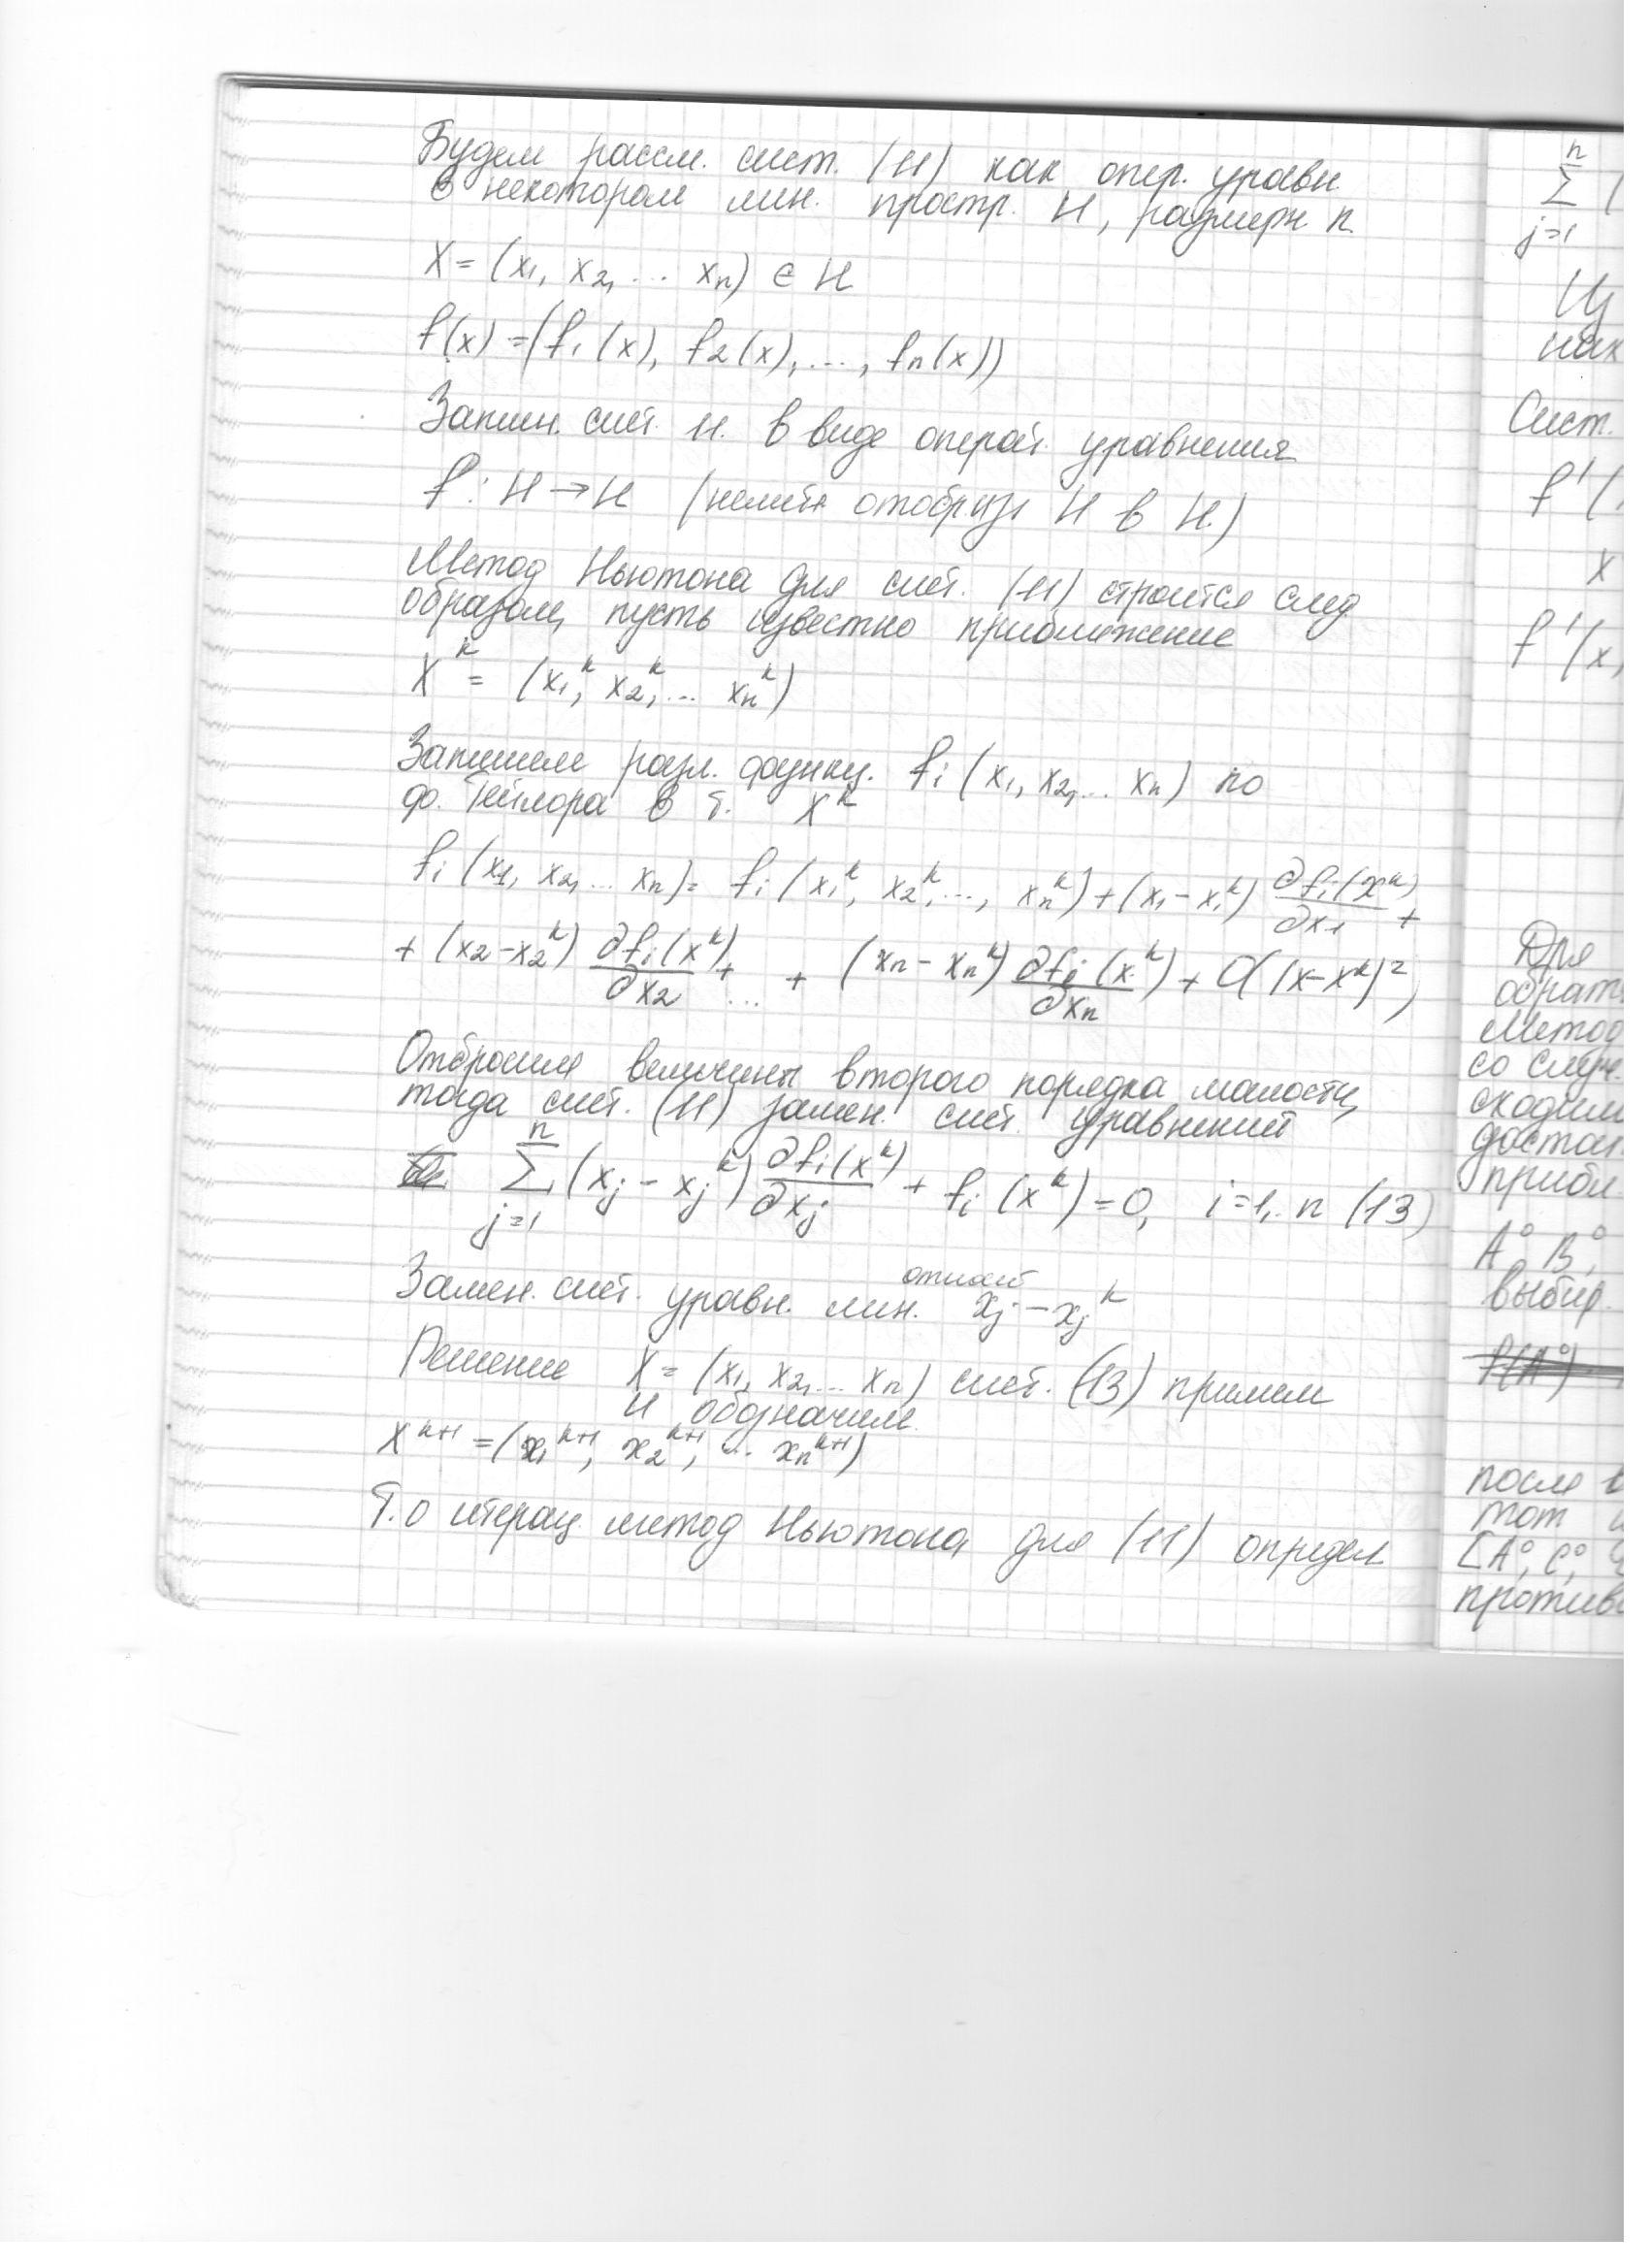 Будем рассм. сист. (11) как опер. уравн.
в некотором лин. простр. H, размерн n
X = (x₁, x₂, ... xₙ) ∈ H
f(x) = (f₁(x), f₂(x), ..., fₙ(x))
Запиш. сист. 11. в виде операт. уравнения
f: H → H (нелин отобраз H в H)
Метод Ньютона для сист. (11) строится след
образом, пусть известно приближение
Xᵏ = (x₁ᵏ, x₂ᵏ, ... xₙᵏ)
Запишем разл. функц. fᵢ(x₁, x₂, ... xₙ) по
ф. Тейлора в т. Xᵏ
fᵢ(x₁, x₂, ... xₙ) = fᵢ(x₁ᵏ, x₂ᵏ, ..., xₙᵏ) + (x₁ - x₁ᵏ) ∂fᵢ(xᵏ)/∂x₁ +
+ (x₂ - x₂ᵏ) ∂fᵢ(xᵏ)/∂x₂ + ... + (xₙ - xₙᵏ) ∂fᵢ(xᵏ)/∂xₙ + O(|x - xᵏ|²)
Отбросим величины второго порядка малости,
тогда сист. (11) замен. сист. уравнений
∑ⱼ₌₁ⁿ (xⱼ - xⱼᵏ) ∂fᵢ(xᵏ)/∂xⱼ + fᵢ(xᵏ) = 0, i = 1,.. n (13)
Замен. сист. уравн. лин. относит xⱼ - xⱼᵏ
Решение X = (x₁, x₂, ... xₙ) сист. (13) примем
и обозначим
Xᵏ⁺¹ = (x₁ᵏ⁺¹, x₂ᵏ⁺¹, ... xₙᵏ⁺¹)
Т.о итерац. метод Ньютона для (11) определ
n
∑ (
j=1
Сист.
f'(
x
f'(x,
Для
обрат
метод
со случ.
сходим
достат.
прибл.
A⁰, B⁰,
выбир.
f(A⁰)
после в
тот
[A⁰, C⁰,
против